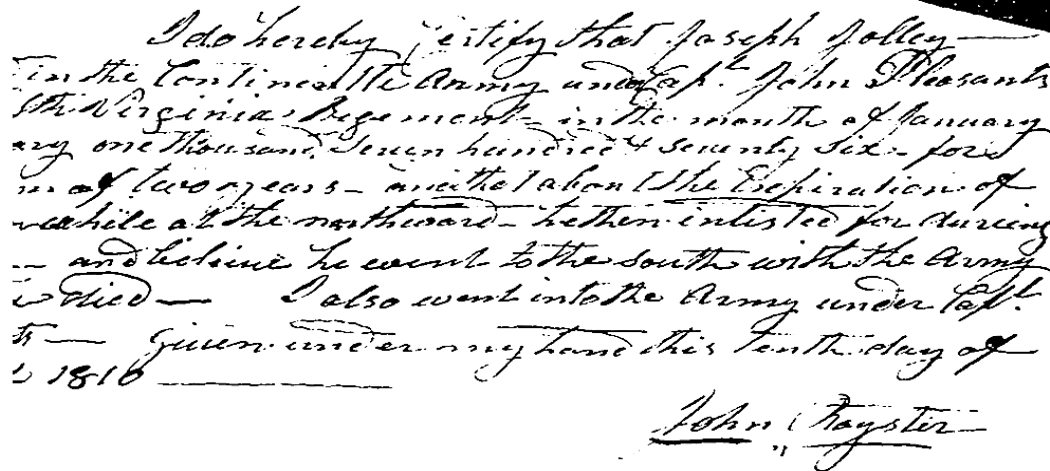 I do hereby Certify that Joseph Jolley —
in the Continentle Army under Capt. John Pleasants
5th Virginia Regement — in the month of January
ary one thousand, Seven hundred & seventy Six — for a
m of two years — and that about the Expiration of
while at the northward — he then inlisted for during
— and believe he went to the South with the Army
died — I also went into the Army under Capt.
ts — Given under my hand this tenth day of
1810
John Royster